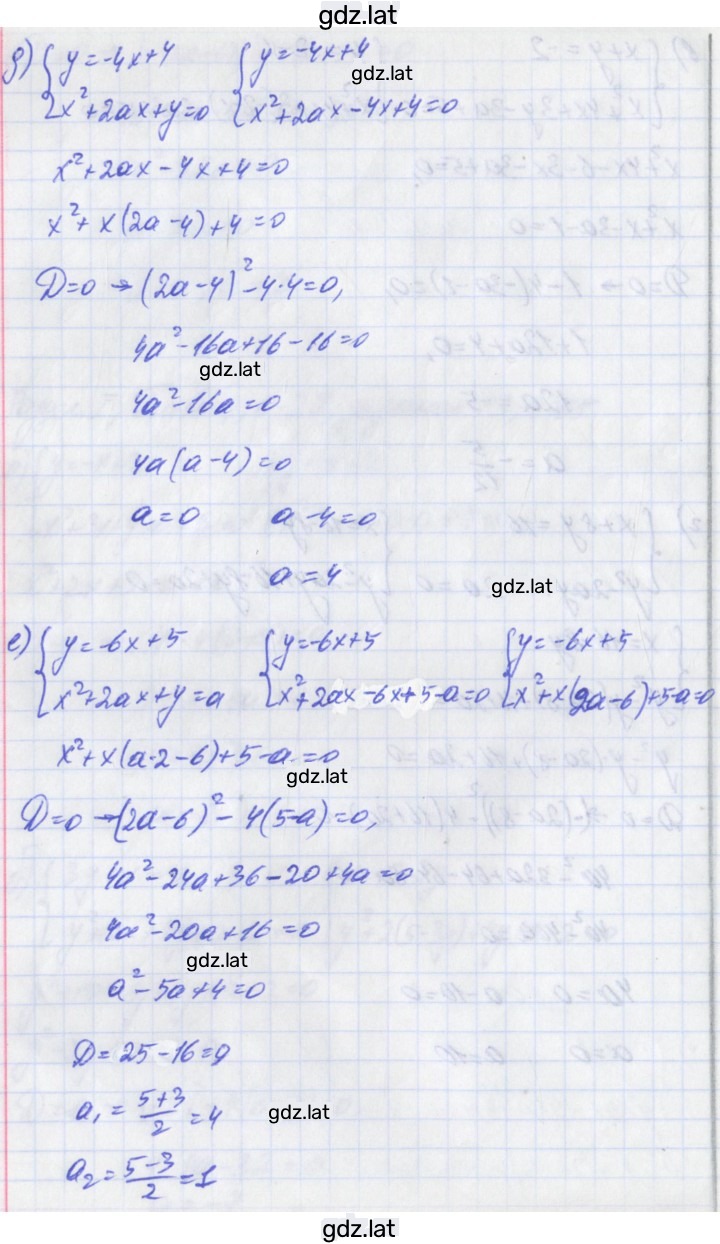 gdz.lat
д) { y = -4x+4    { y = -4x+4
x²+2ax+y=0    x²+2ax-4x+4=0
gdz.lat
x²+2ax-4x+4=0
x²+x(2a-4)+4=0
D=0 → (2a-4)²-4·4=0,
4a²-16a+16-16=0
gdz.lat
4a²-16a=0
4a(a-4)=0
a=0    a-4=0
a=4
gdz.lat
е) { y=-6x+5    { y=-6x+5    { y=-6x+5
x²+2ax+y=a    x²+2ax-6x+5-a=0    x²+x(2a-6)+5-a=0
x²+x(a·2-6)+5-a=0
gdz.lat
D=0 → (2a-6)²-4(5-a)=0,
4a²-24a+36-20+4a=0
4a²-20a+16=0
gdz.lat
a²-5a+4=0
D=25-16=9
a₁=(5+3)/2=4
gdz.lat
a₂=(5-3)/2=1
gdz.lat